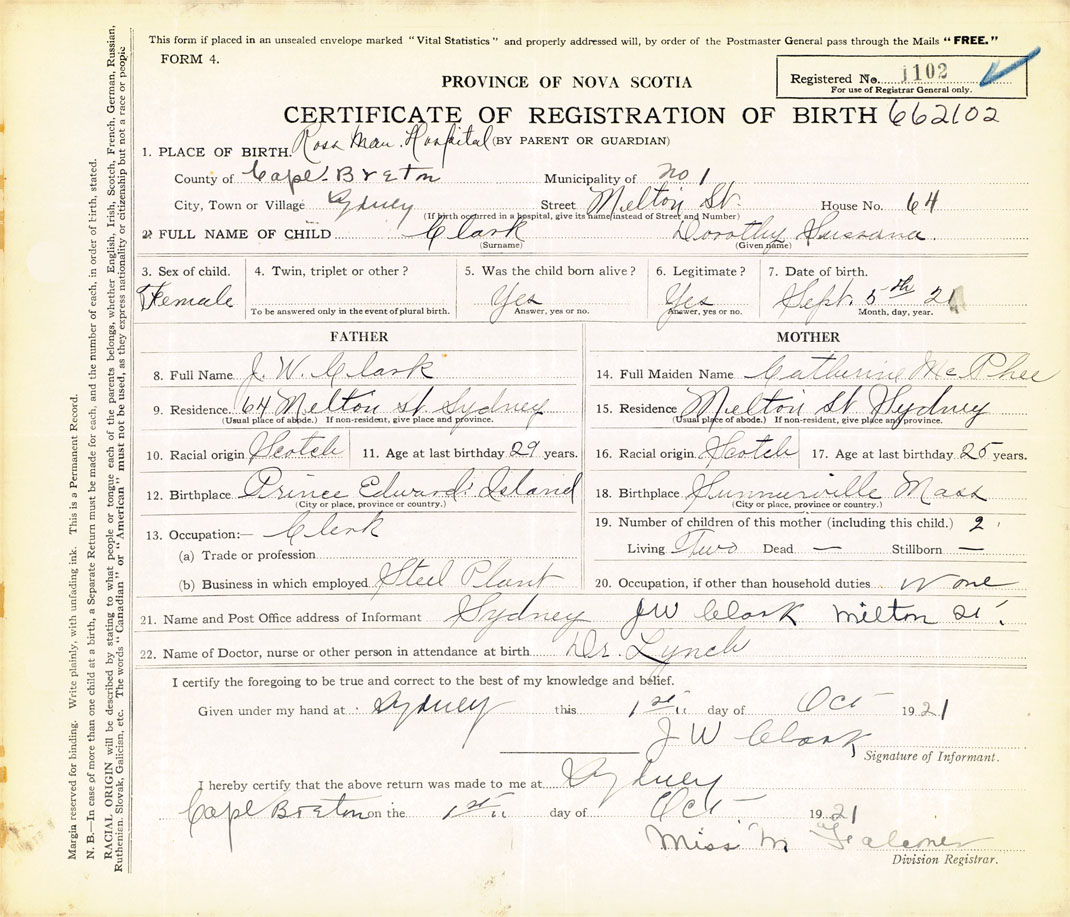 This form if placed in an unsealed envelope marked "Vital Statistics" and properly addressed will, by order of the Postmaster General pass through the Mails "FREE."
FORM 4.
Registered No. 1102
For use of Registrar General only.
PROVINCE OF NOVA SCOTIA
CERTIFICATE OF REGISTRATION OF BIRTH 662102
(BY PARENT OR GUARDIAN)
1. PLACE OF BIRTH. Ross Mem. Hospital
County of Cape Breton Municipality of no 1
City, Town or Village Sydney Street Melton St. House No. 64
(If birth occurred in a hospital, give its name instead of Street and Number)
2. FULL NAME OF CHILD Clark Dorothy Sussana
(Surname) (Given name)
3. Sex of child. 4. Twin, triplet or other? 5. Was the child born alive? 6. Legitimate? 7. Date of birth.
Female Yes Yes Sept. 5th 21
To be answered only in the event of plural birth. Answer, yes or no. Answer, yes or no. Month, day, year.
FATHER
8. Full Name J. W. Clark
9. Residence 64 Melton St. Sydney
(Usual place of abode.) If non-resident, give place and province.
10. Racial origin Scotch 11. Age at last birthday 29 years.
12. Birthplace Prince Edward Island
(City or place, province or country.)
13. Occupation:— Clerk
(a) Trade or profession
(b) Business in which employed Steel Plant
MOTHER
14. Full Maiden Name Catherine McPhee
15. Residence Melton St. Sydney
(Usual place of abode.) If non-resident, give place and province.
16. Racial origin Scotch 17. Age at last birthday 25 years.
18. Birthplace Summerville Mass
(City or place, province or country.)
19. Number of children of this mother (including this child.) 2
Living Two Dead — Stillborn —
20. Occupation, if other than household duties None
21. Name and Post Office address of Informant Sydney JW Clark Milton St.
22. Name of Doctor, nurse or other person in attendance at birth Dr. Lynch
I certify the foregoing to be true and correct to the best of my knowledge and belief.
Given under my hand at Sydney this 1st day of Oct 1921
J W Clark
Signature of Informant.
I hereby certify that the above return was made to me at Sydney
Cape Breton on the 1st day of Oct 1921
Miss M Falconer
Division Registrar.
Margin reserved for binding. Write plainly, with unfading ink. This is a Permanent Record.
N. B.—In case of more than one child at a birth, a Separate Return must be made for each, and the number of each, in order of birth, stated.
RACIAL ORIGIN will be described by stating to what people or tongue each of the parents belongs, whether English, Irish, Scotch, French, German, Russian,
Ruthenian, Slovak, Galician, etc. The words "Canadian" or "American" must not be used, as they express nationality or citizenship but not a race or people